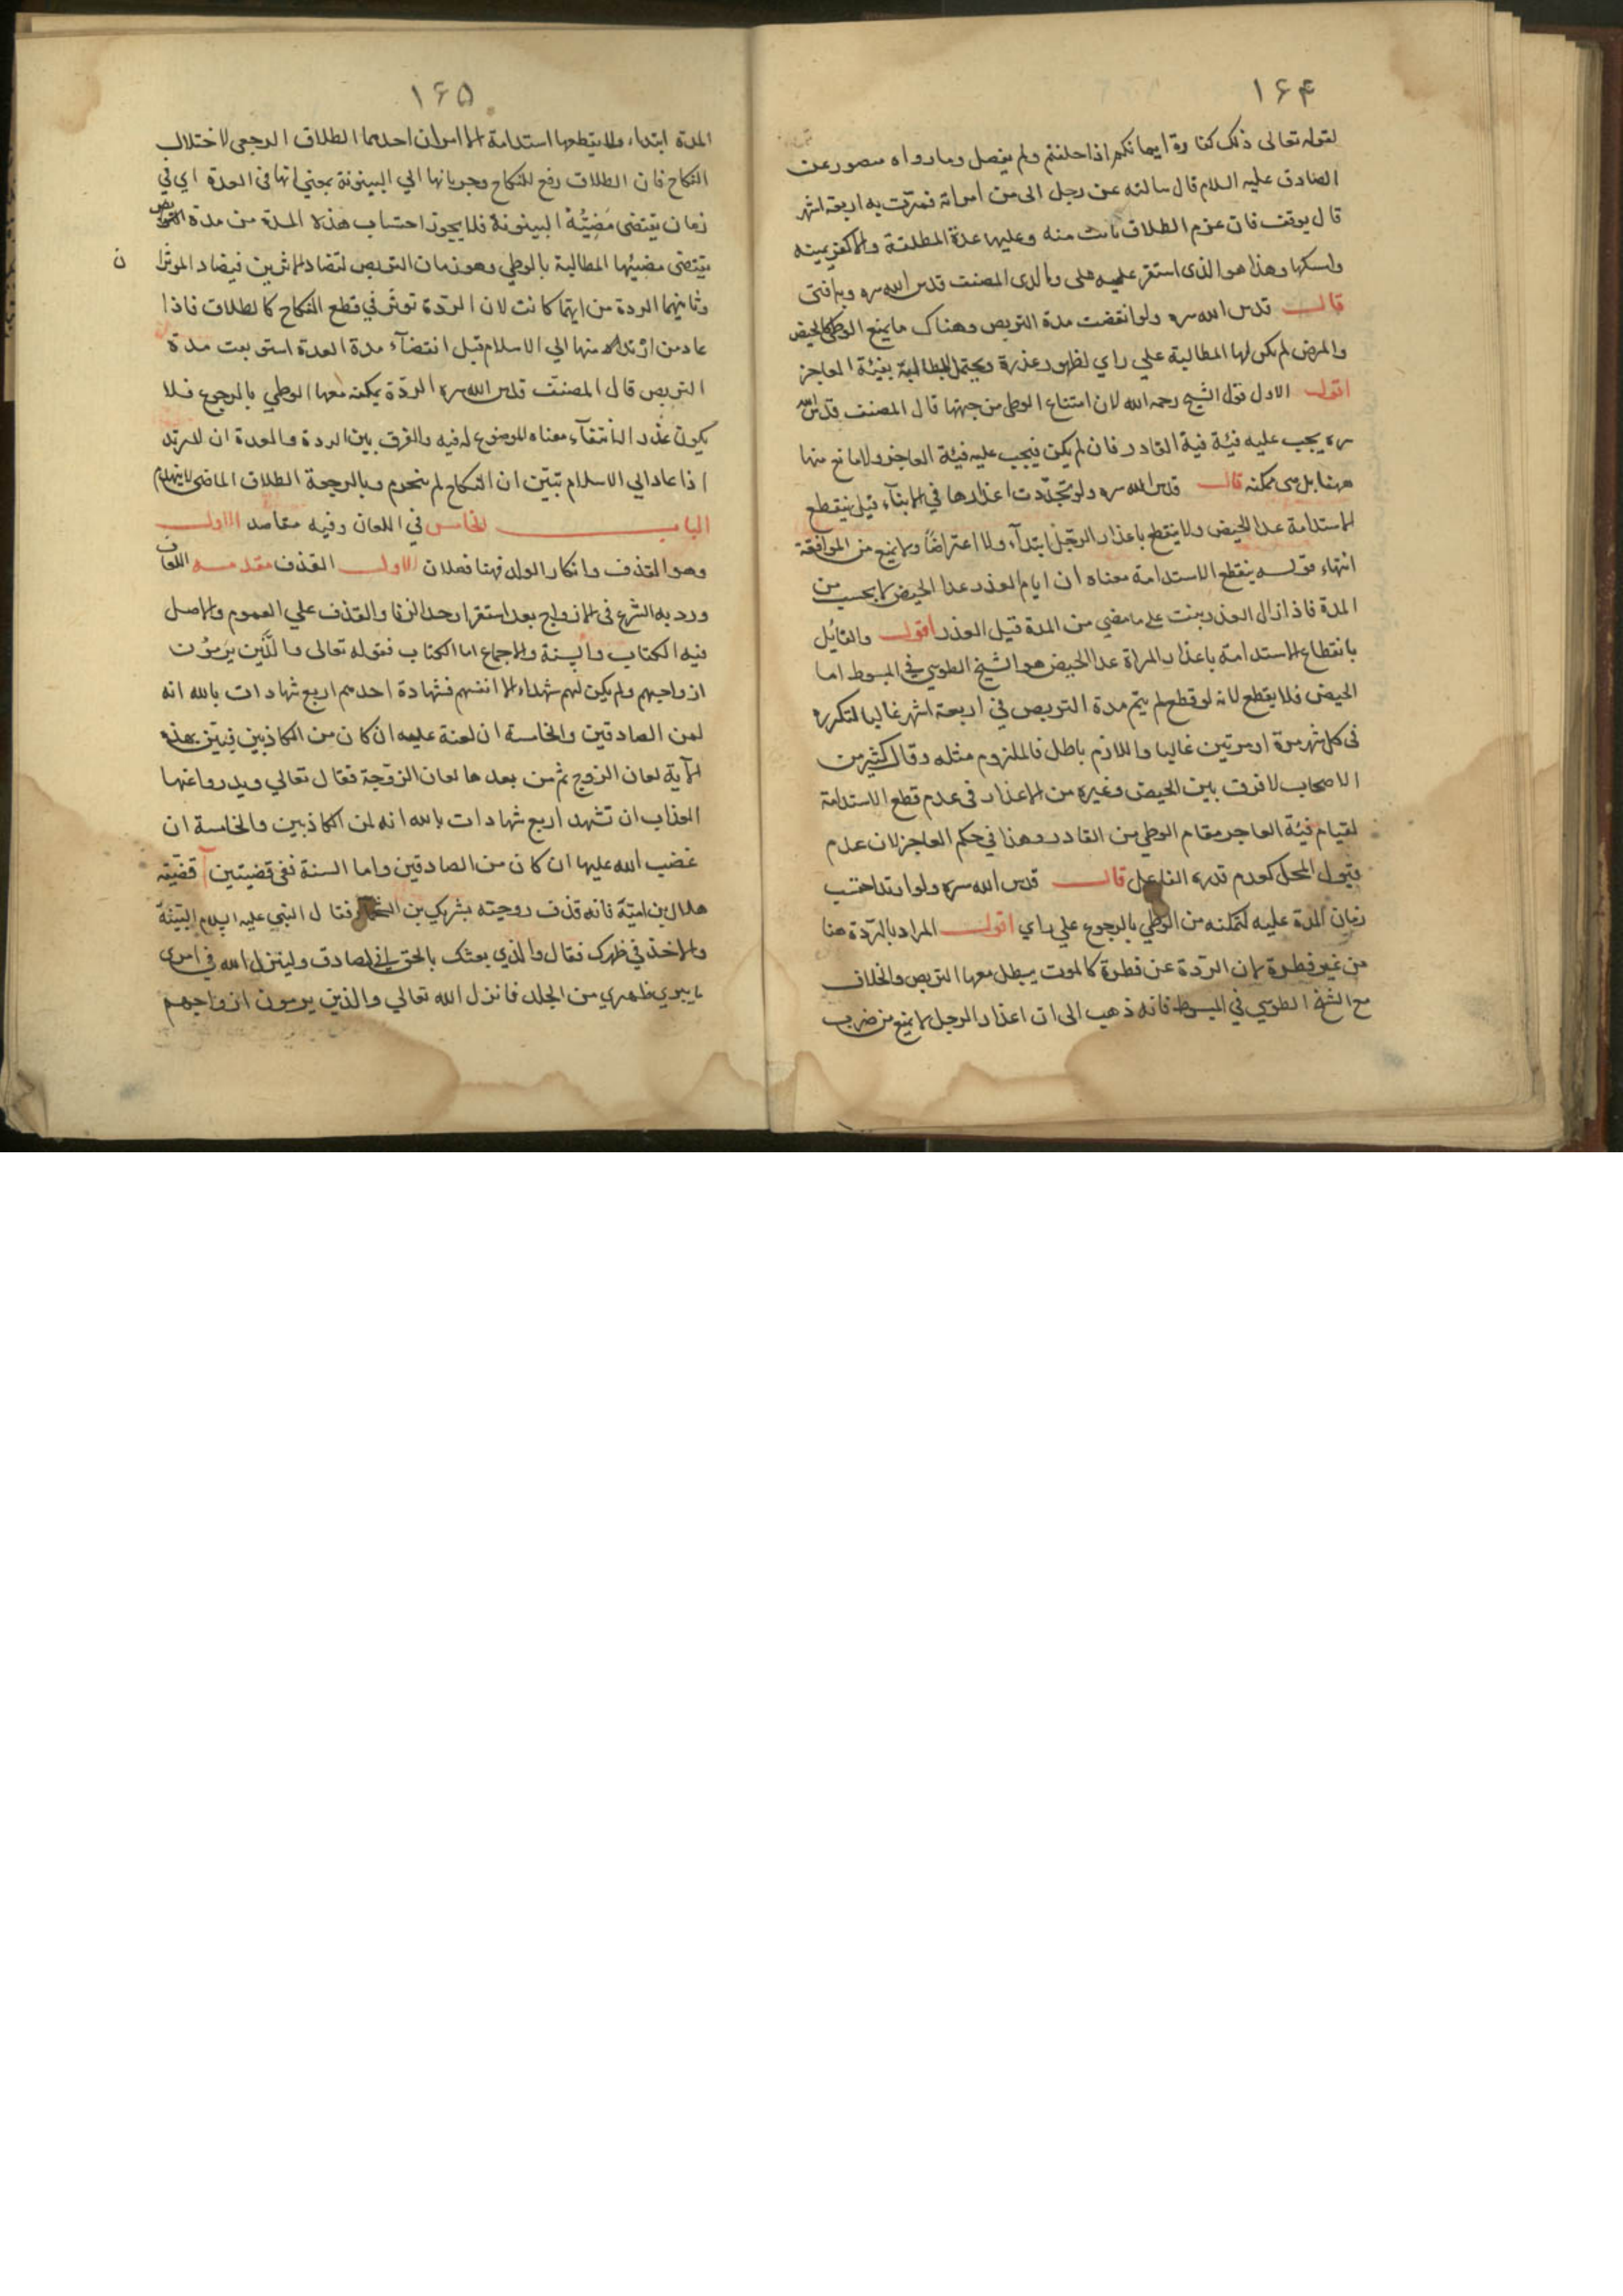 ۱۶۴
لقوله تعالى ذلك كفارة ايمانكم اذا حلفتم ولم يفصل وما رواه منصور عن
الصادق عليه السلام قال سالته عن رجل الى من امراته فمرت به اربعة اشهر
قال يوقف فان عزم الطلاق بانت منه وعليها عدة المطلقة والا كفر يمينه
وامسكها وهذا هو الذى استقر عليه والدى المصنف قدس الله سره وبه افتى
قال قدس الله سره ولو انقضت مدة التربص وهناك ما يمنع الوطى كالحيض
والمرض لم يكن لها المطالبة علي راي لظهور عذره ويحتمل المطالبة بفيئة العاجز
اقول الاول قول الشيخ رحمه الله لان امتناع الوطى من جهتها قال المصنف قدس الله
سره يجب عليه فيئة القادر فان لم يكن فيجب عليه فيئة العاجز ولا مانع منها
هنا بل هى ممكنه قال قدس الله سره ولو تجددت اعذارها في الابتآء قيل ينقطع
الاستدامة عدا الحيض ولا ينقطع باعذار الرجل ابتدآء ولا اعتراضا ولا يمنع من الموافقة
انتهاء قوله ينقطع الاستدامة معناه ان ايام العذر عدا الحيض لا يحسب من
المدة فاذا زال العذر بنت على ما مضي من المدة قبل العذر اقول والقايل
بانقطاع الاستدامة باعذار المراة عدا الحيض هو الشيخ الطوسي في المبسوط اما
الحيض فلا يقطع لانه لو قطع لم يتم مدة التربص في اربعة اشهر غالبا لتكرره
فى كل شهر مرة او مرتين غالبا واللازم باطل فالملزوم مثله وقال كثير من
الاصحاب لا فرق بين الحيض وغيره من الاعذار فى عدم قطع الاستدامة
لقيام فيئة العاجز مقام الوطي من القادر وهذا في حكم العاجز لان عدم
قبول المحل كعدم قدرة الفاعل قال قدس الله سره ولو ارتد احتسب
زمان المدة عليه لتمكنه من الوطي بالرجوع علي راي اقول المراد بالردة هنا
من غير فطرة لان الردة عن فطرة كالموت يبطل معها التربص والخلاف
مع الشيخ الطوسي في المبسوط فانه ذهب الى ان اعذار الرجل لا يمنع من ضرب
۱۶۵
المدة ابتداء ولا يقطعها استدامة الا امران احدهما الطلاق الرجعى لاختلال
النكاح فان الطلاق رفع للنكاح وجريانها الي البينونة بمعنى انها فى العدة اي في
زمان يقتضى مضيه البينونة فلا يجوز احتساب هذه المدة من مدة التربص
يقتضى مضيها المطالبة بالوطي وهو زمان التربص لتضاد الاثرين فيضاد الموثرا
ن
وثانيهما الردة من ايهما كانت لان الردة توثر في قطع النكاح كالطلاق فاذا
عاد من ارتد منها الي الاسلام قبل انقضآء مدة العدة استونفت مدة
التربص قال المصنف قدس الله سره الردة يمكنه معها الوطي بالرجوع فلا
يكون عذرا لانتفآء معناه الموضوع له فيه والفرق بين الردة والعدة ان المرتد
اذا عاد الي الاسلام تبين ان النكاح لم ينخرم وبالرجعة الطلاق الماضى لا ينهدم
الباب الخامس في اللعان وفيه مقاصد الاول
وهو القذف وانكار الولد فهنا فصلان الاول القذف مقدمه اللعان
ورد به الشرع فى الازواج بعد استقرار حد الزنا والقذف علي العموم والاصل
فيه الكتاب والسنة والاجماع اما الكتاب فقوله تعالى والذين يرمون
ازواجهم ولم يكن لهم شهداء الا انفسهم فشهادة احدهم اربع شهادات بالله انه
لمن الصادقين والخامسة ان لعنة عليه ان كان من الكاذبين فبين بهذه
الآية لعان الزوج ثم من بعدها لعان الزوجة فقال تعالي ويدروا عنها
العذاب ان تشهد اربع شهادات بالله انه لمن الكاذبين والخامسة ان
غضب الله عليها ان كان من الصادقين واما السنة ففى قضيتين آ قضية
هلال بن امية فانه قذف زوجته بشريك بن السحماء فقال النبي عليه السلام البينة
والا حد في ظهرك فقال والذي بعثك بالحق اني لصادق ولينزل الله في امرى
ما يبري ظهري من الجلد فانزل الله تعالي والذين يرمون ازواجهم